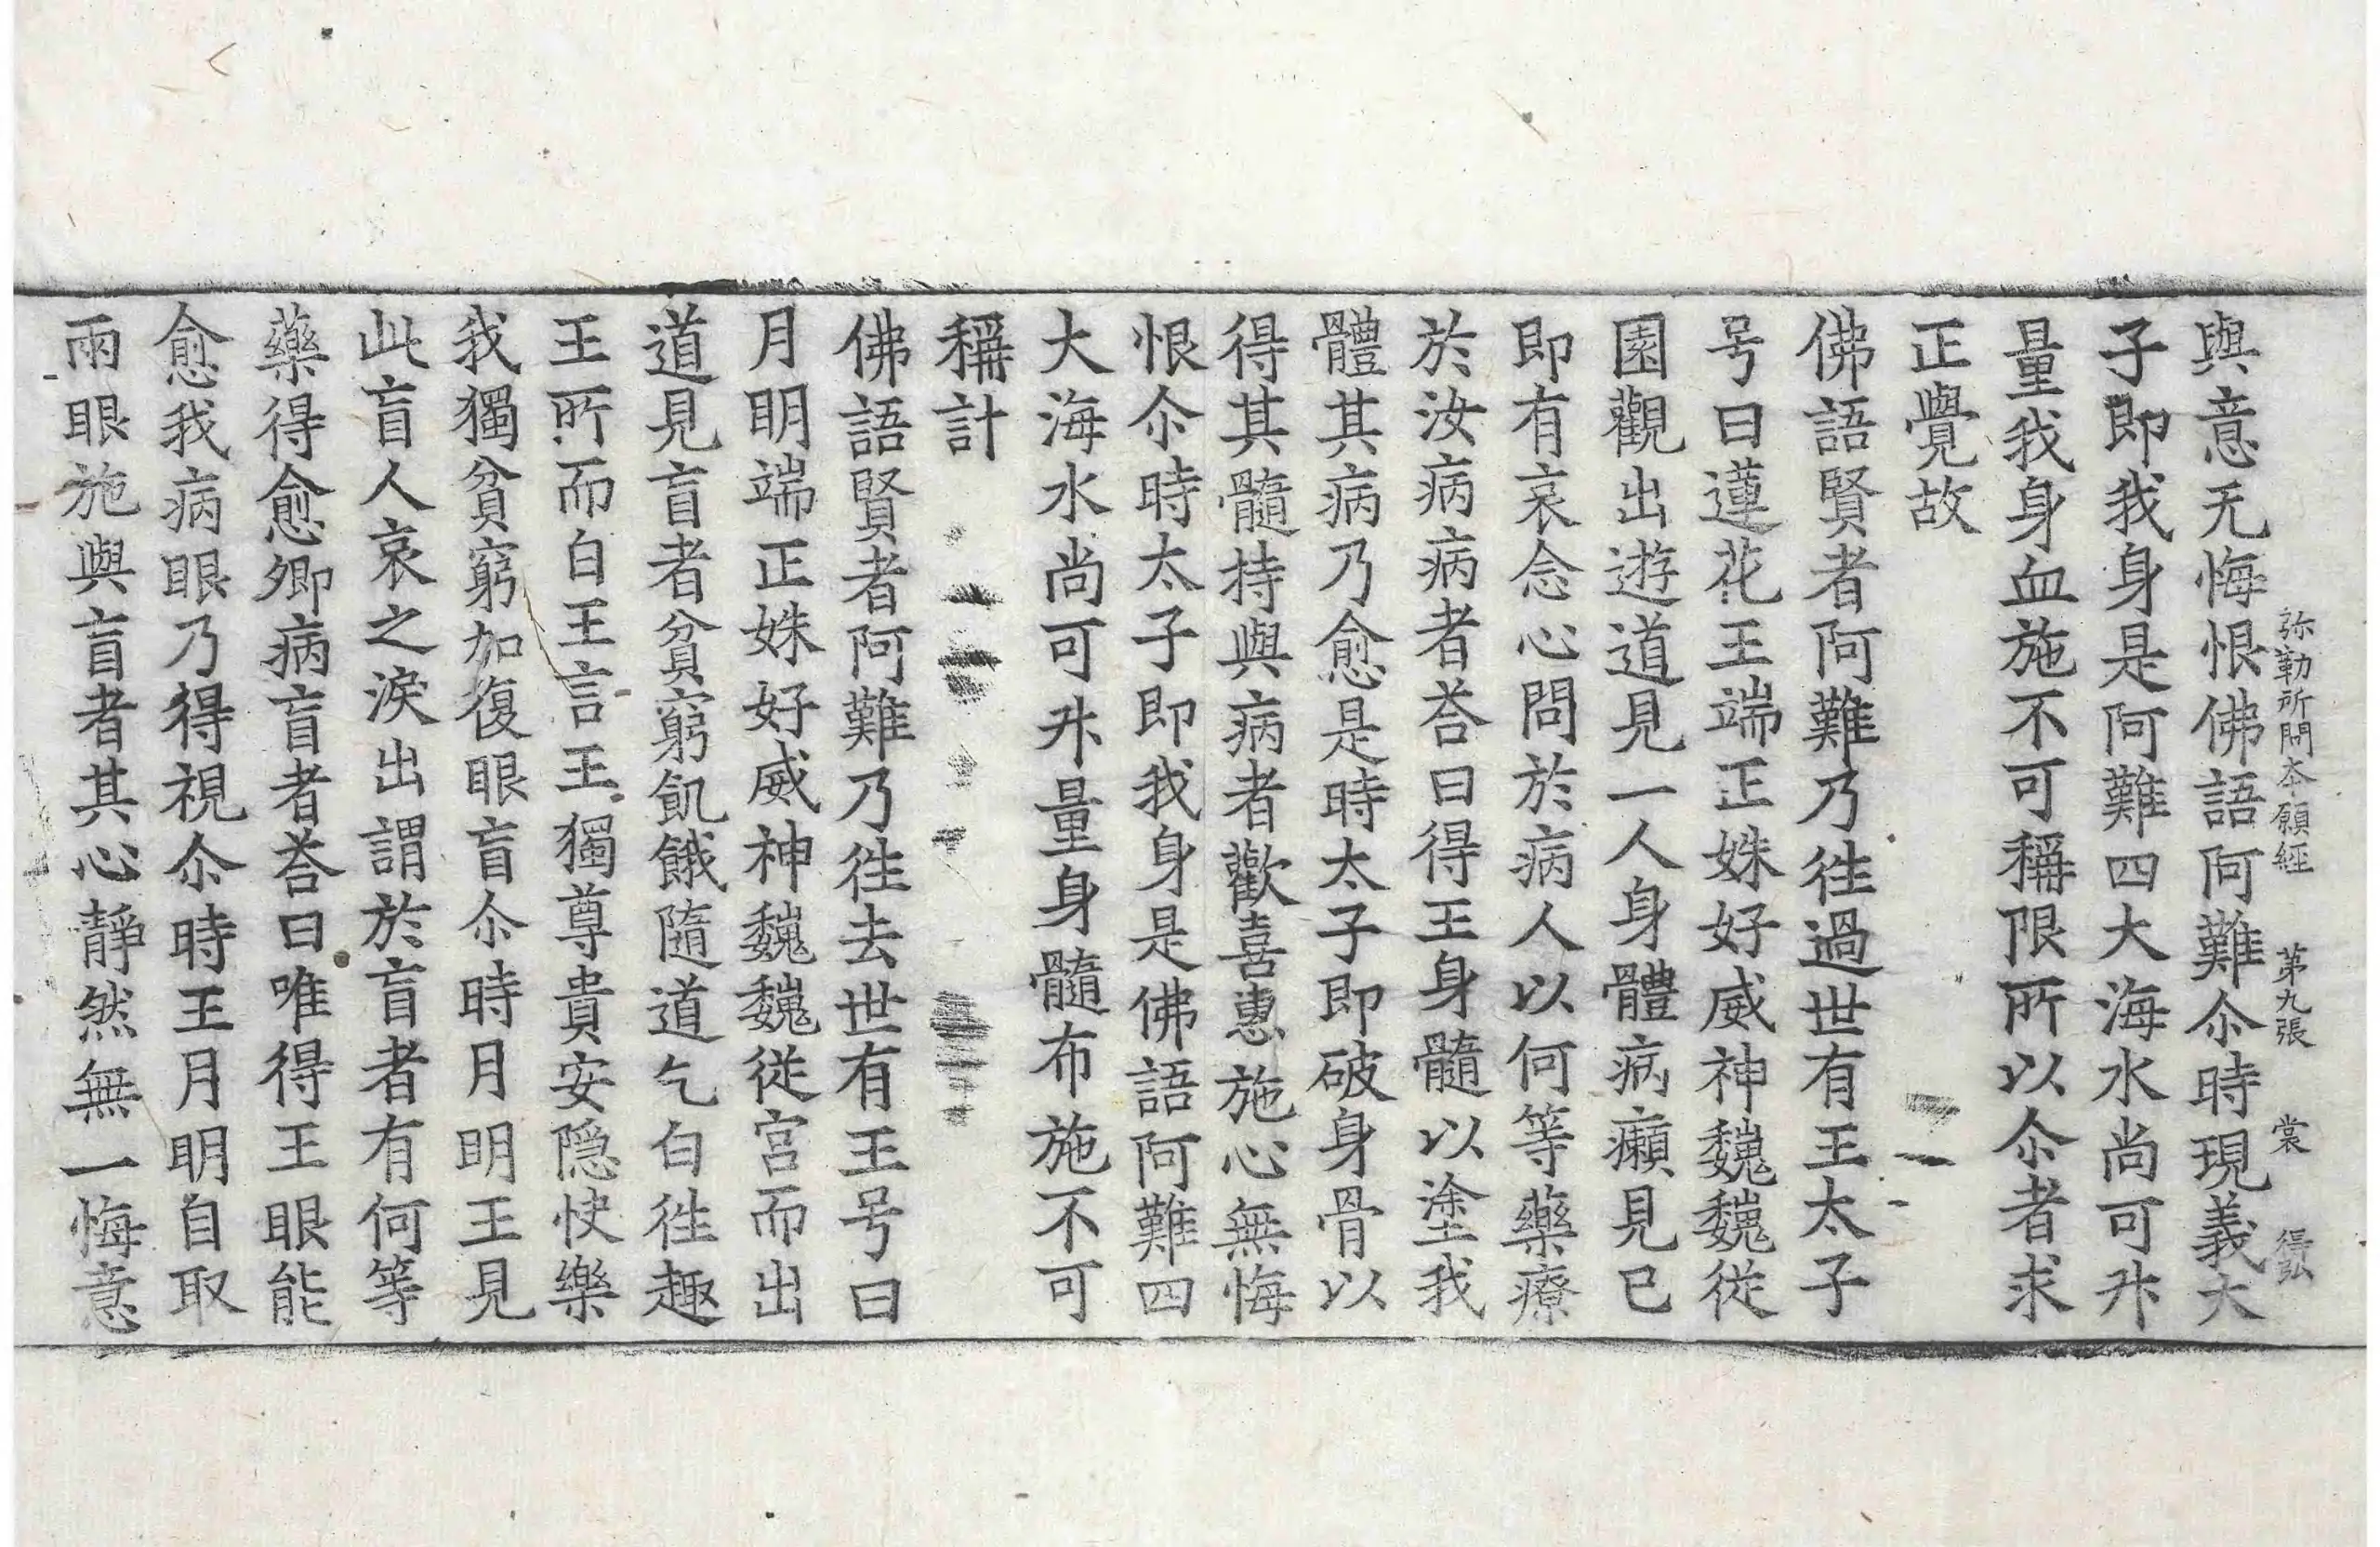 弥勒所問本願経 第九張 裳 得弘
與意无悔恨佛語阿難尒時現義太
子即我身是阿難四大海水尚可升
量我身血施不可稱限所以尒者求
正覺故
佛語賢者阿難乃徃過世有王太子
号曰蓮花王端正姝好威神巍巍従
園觀出遊道見一人身體病癩見已
即有哀念心問於病人以何等藥療
於汝病病者荅曰得王身髓以塗我
體其病乃愈是時太子即破身骨以
得其髓持與病者歡喜惠施心無悔
恨尒時太子即我身是佛語阿難四
大海水尚可升量身髓布施不可
稱計
佛語賢者阿難乃徃去世有王号曰
月明端正姝好威神巍巍従宮而出
道見盲者貧窮飢餓隨道乞匃徃趣
王所而白王言王獨尊貴安隠快樂
我獨貧窮加復眼盲尒時月明王見
此盲人哀之淚出謂於盲者有何等
藥得愈卿病盲者荅曰唯得王眼能
愈我病眼乃得視尒時王月明自取
兩眼施與盲者其心靜然無一悔意